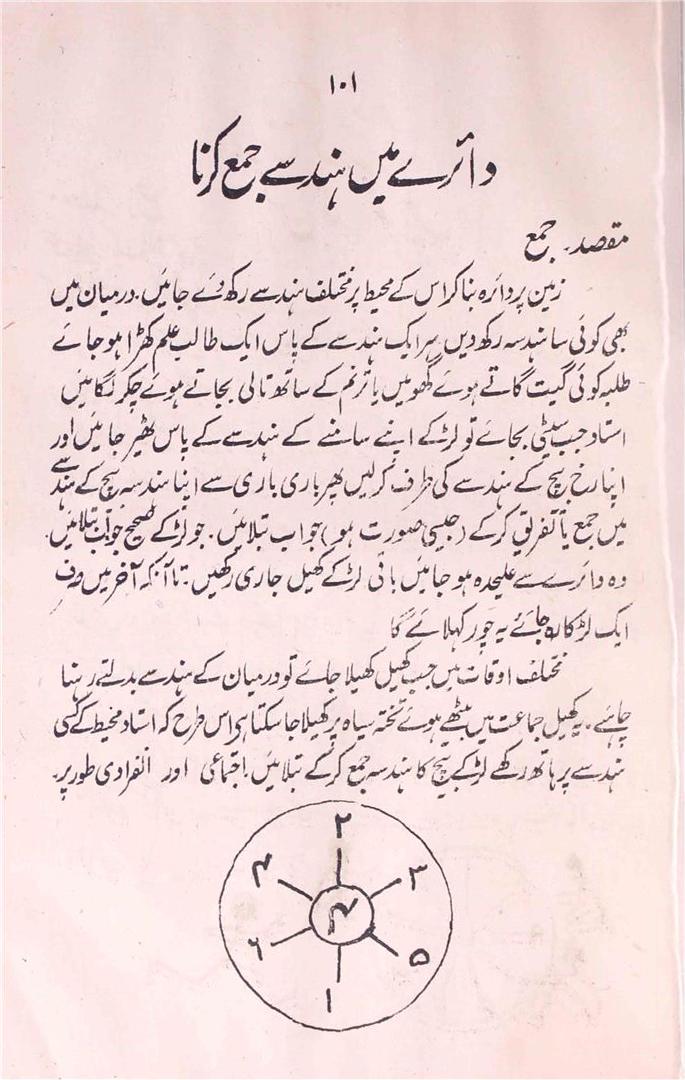 ۱۰۱
دائرے میں ہندسے جمع کرنا
مقصد۔ جمع
زمین پر دائرہ بنا کر اس کے محیط پر مختلف ہندسے رکھ دئے جائیں۔ درمیان میں
بھی کوئی سا ہندسہ رکھ دیں۔ ہر ایک ہندسے کے پاس ایک طالب علم کھڑا ہو جائے
طلبہ کوئی گیت گاتے ہوئے گھومیں یا ترنم کے ساتھ تالی بجاتے ہوئے چکر لگائیں
استاد جب سیٹی بجائے تو لڑکے اپنے سامنے کے ہندسے کے پاس ٹھیر جائیں اور
اپنا رخ بیچ کے ہندسے کی طرف کرلیں پھر باری باری سے اپنا ہندسہ بیچ کے ہندسے
میں جمع یا تفریق کرکے (جیسی صورت ہو) جواب بتلائیں۔ جو لڑکے صحیح جواب بتلائیں۔
وہ دائرے سے علیحدہ ہو جائیں باقی لڑکے کھیل جاری رکھیں۔ تا آنکہ آخر میں صرف
ایک لڑکا رہ جائے یہ چور کہلائے گا
مختلف اوقات میں جب کھیل کھیلا جائے تو درمیان کے ہندسے بدلتے رہنا
چاہئے۔ یہ کھیل جماعت میں بیٹھے ہوئے تختہ سیاہ پر کھیلا جا سکتا ہی اس طرح کہ استاد محیط کے کسی
ہندسے پر ہاتھ رکھے لڑکے بیچ کا ہندسہ جمع کرکے بتلائیں۔ اجتماعی اور انفرادی طور پر۔
۲
۴ ۳
۴
۶ ۵
۱